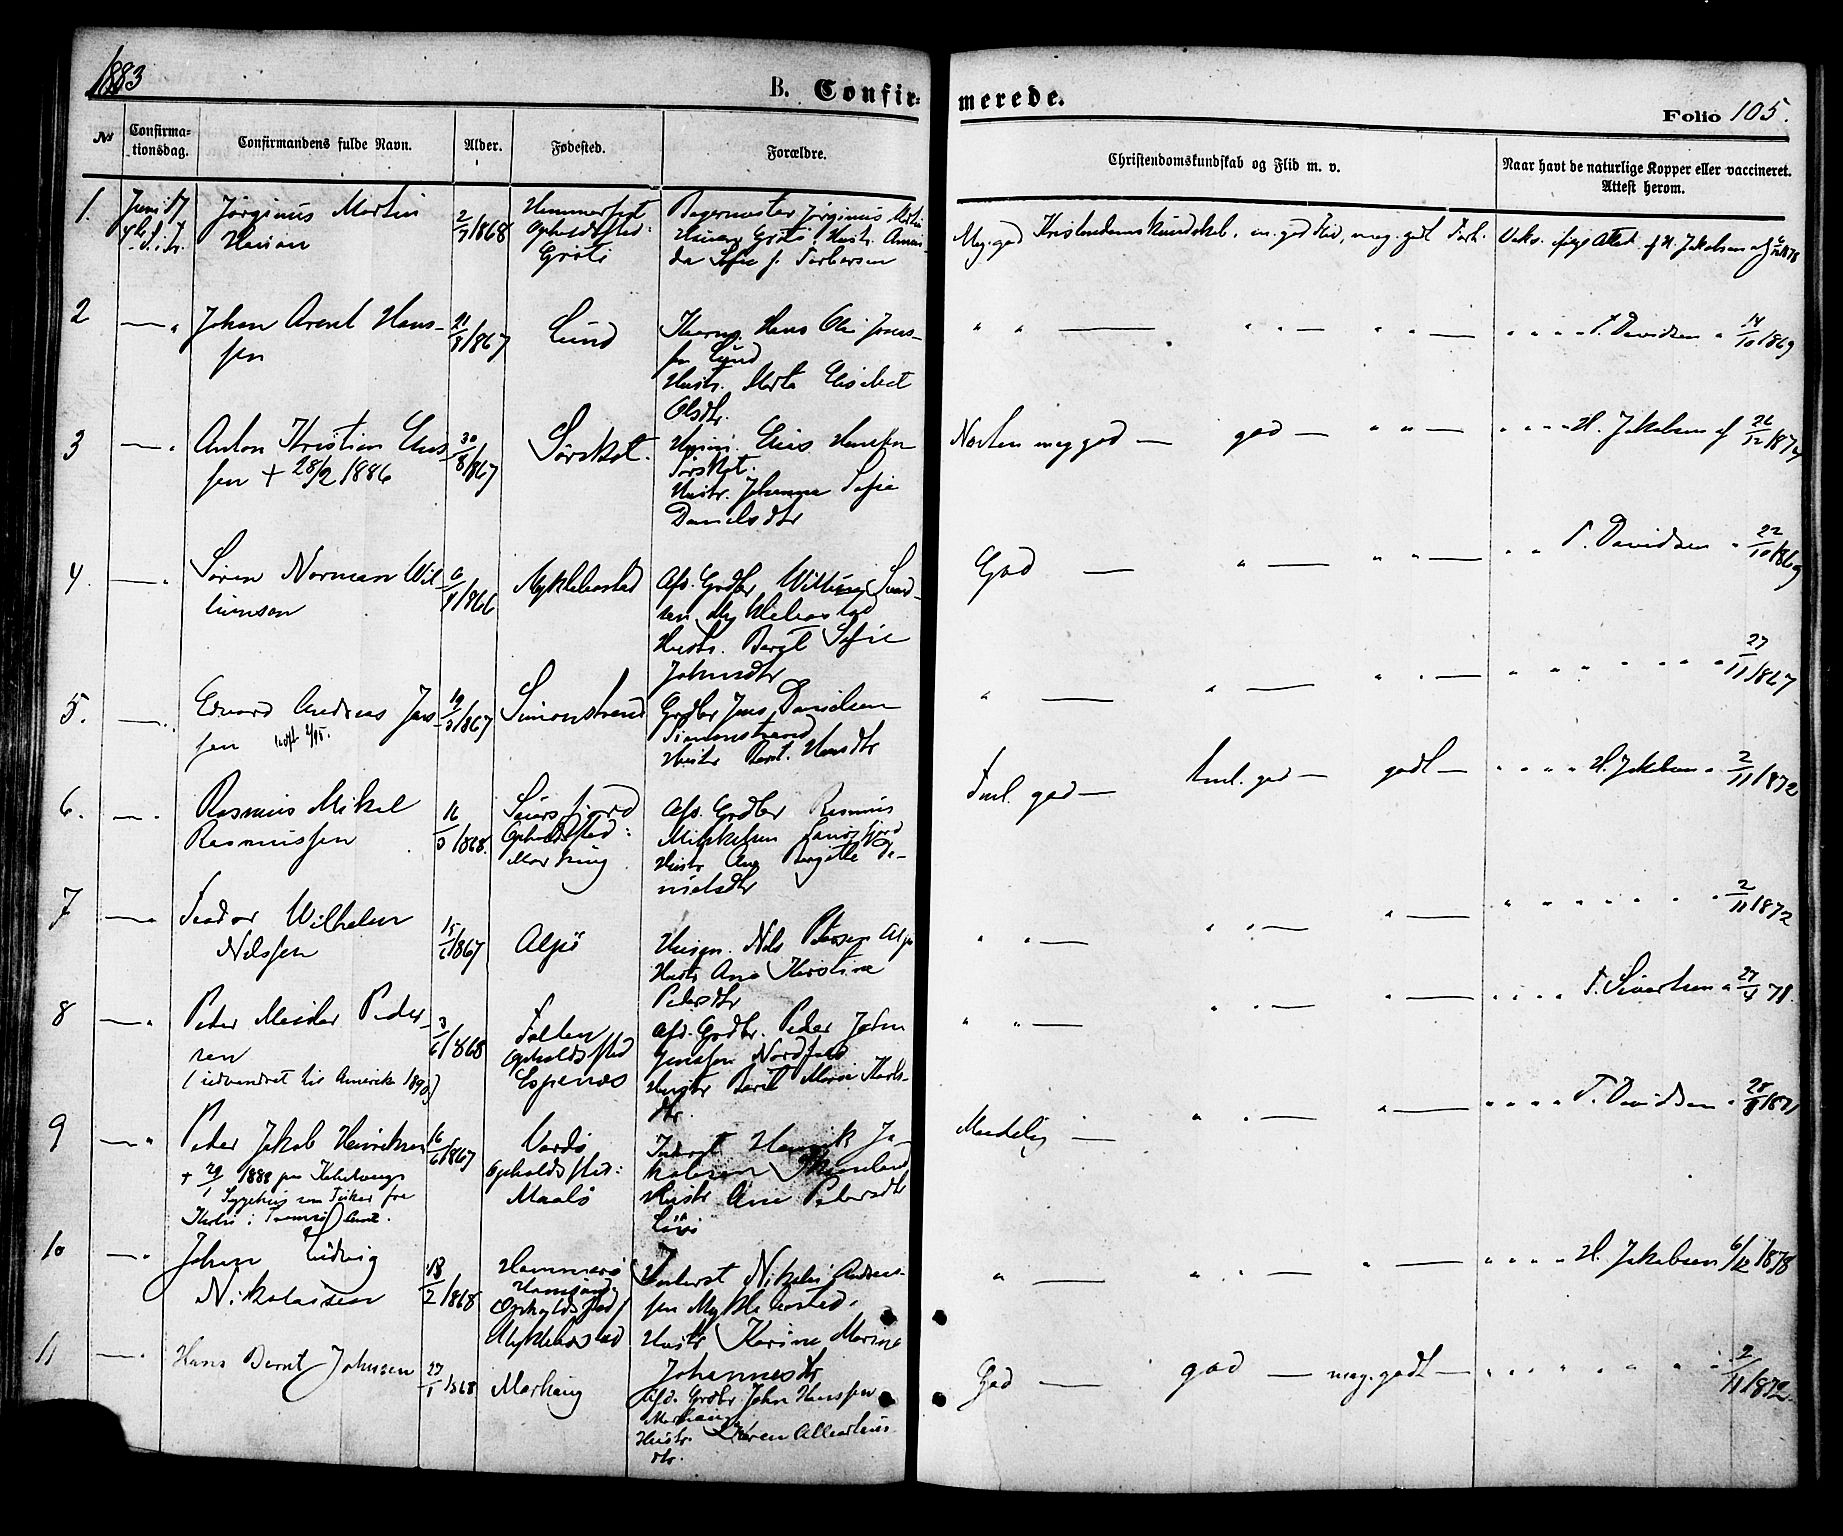 1883
B. Confir-
merede.
Folio 105.
No
Confirma-
tionsdag.
Confirmandens fulde Navn.
Alder.
Fødested.
Forældre.
Christendomskundskab og Flid m. v.
Naar havt de naturlige Kopper eller vaccineret.
Attest herom.
1.
Juni 17
Jørginus Martin
Hansen
2/3 1868
Hammerfest
Opholdssted:
Grøtø
Jørginus Martin
Hansen Grøtø, Hustr. Aman-
da Sofie f. Torbersen
Meg. god Kristendomskundskab, m. god Flid, meg. godt Forh.
Vaks. ifølge Attest af H. Jakobsen af 1878
2
— "
Johan Arent Hans-
sen
21/8 1867
Lund
Hans Ole Jens-
sen Lund
Hustr. Marta Elisabet
Olsdtr.
" " — " " — " " —
" " " " T. Davidsen " 14/10 1869
3
— "
Anton Kristian Elias-
sen + 28/2 1886
30/8 1867
Sørskot.
Elias Hansen
Sørskot.
Hustr. Johanna Sofie
Danielsdtr
Næsten meg god — god — " " —
" " " " H. Jakobsen af 26/12 1874
4.
— "
Søren Norman Wil-
liumsen
6/11 1866
Myklebostad
Afd. Grdbr Willium Svend-
sen Myklebostad
Hustr. Berit Sofie
Johnsdtr
God — " — " " —
" " T. Davidsen " 22/10 1869
5.
— "
Edvard Andreas Jens-
sen
19/3 1867
Simonstrand
Grdbr Jens Danielsen
Simonstrand
Hustr Bernt. Hansdtr
" — " — " " —
" " " " " " " 27/11 1867
6.
— "
Rasmus Mikal
Rasmussen
16/3 1868.
Saursfjord
Opholdssted:
Marhaug
Afd. Grdbr Rasmus
Mikkelsen Saursfjord
Hustr Ane Birgitte Da-
nielsdtr
Teml. god — teml. god — godt —
" " " " H. Jakobsen " 2/11 1872
7
— "
Teodor Wilhelm
Nilssen
15/6 1867
Alpø
Husm. Nils Petersen Alpø
Hustr Ane Kirstine
Pedersdtr
" " — " " — " —
" " " " " " " 2/11 1872
8
— "
Peder Meidel Peder-
sen
(udvandret til Amerika 1890)
3/6 1868
Folden
Opholdssted
Espenes
Afd. Grdbr. Peder John
Jensen Nordfold
Hustr Berit Maria Karls-
dtr.
" " — " " — " —
" " " " T. Sivertsen " 27/4 78.
9
— "
Peder Jakob Henriksen
+ 29/1 1888 paa Kabelvaag
Sygehus som Fisker fra
16/6 1867
Vardø
Opholdssted:
Maalø
Inderst Henrik Ja-
kobsen
Hustr Ane Pedersdtr
Maadelig — " " — " —
" " " " T. Davidsen " 28/8 1871
10
— "
Johan Ludvig
Nikolaisen
13/2 1868
Hammerø
Opholdssted
Myklebostad
Inderst Nikolai Andreas-
sen Myklebostad.
Hustr Karine Marine
Johannesdtr
" — " " — " —
" " " " H. Jakobsen 6/12 1878
11
— "
Hans Bernt Johnsen
27/1 1868
Marhaug
Afd. Grdbr John Hanssen
Marhaug
Hustr. Karen Albertus-
dtr.
God — god — meg. godt —
" " " " " " " 2/11 1872.